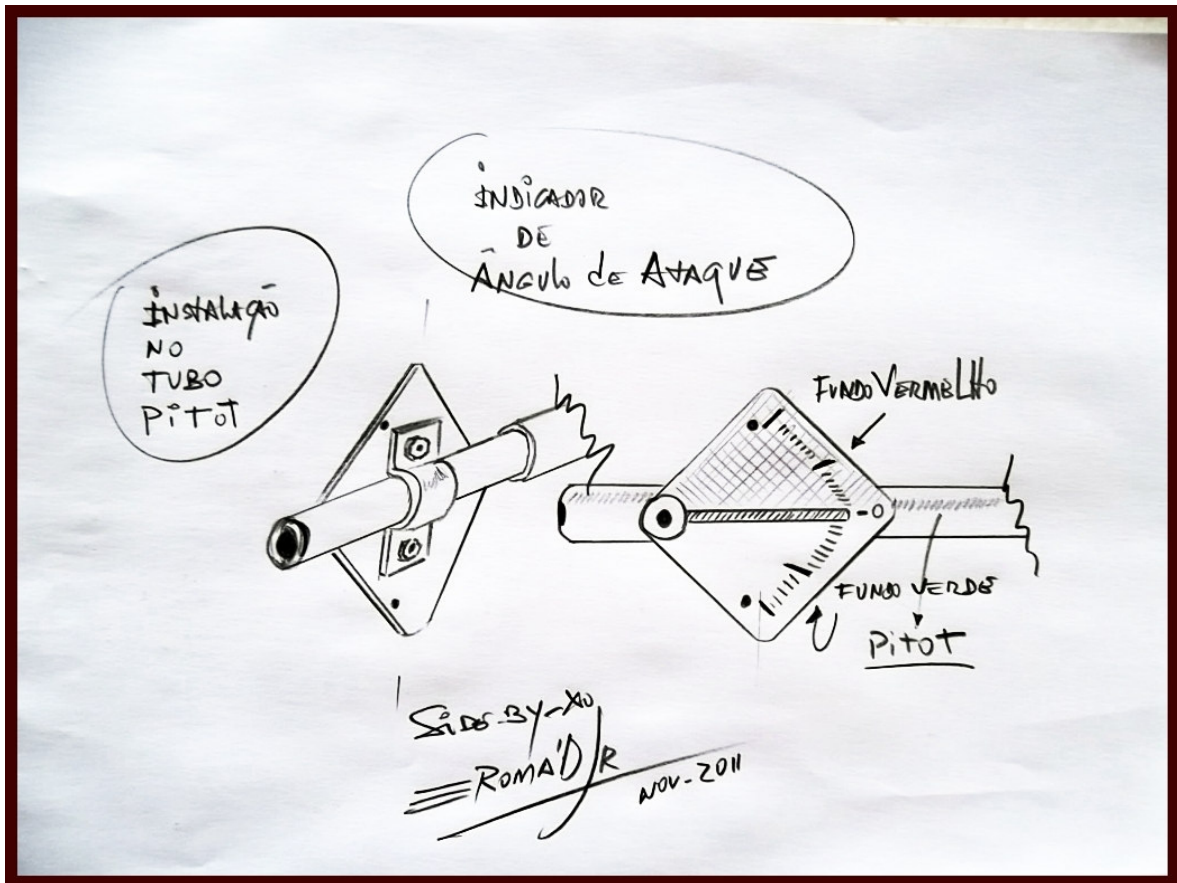 INDICADOR
DE
ÂNGULO de ATAQUE
INSTALAÇÃO
NO
TUBO
PITOT
FUNDO VERMELHO
-0
FUNDO VERDE
PITOT
SIDE-BY-XO
ROMA'D JR
NOV-2011